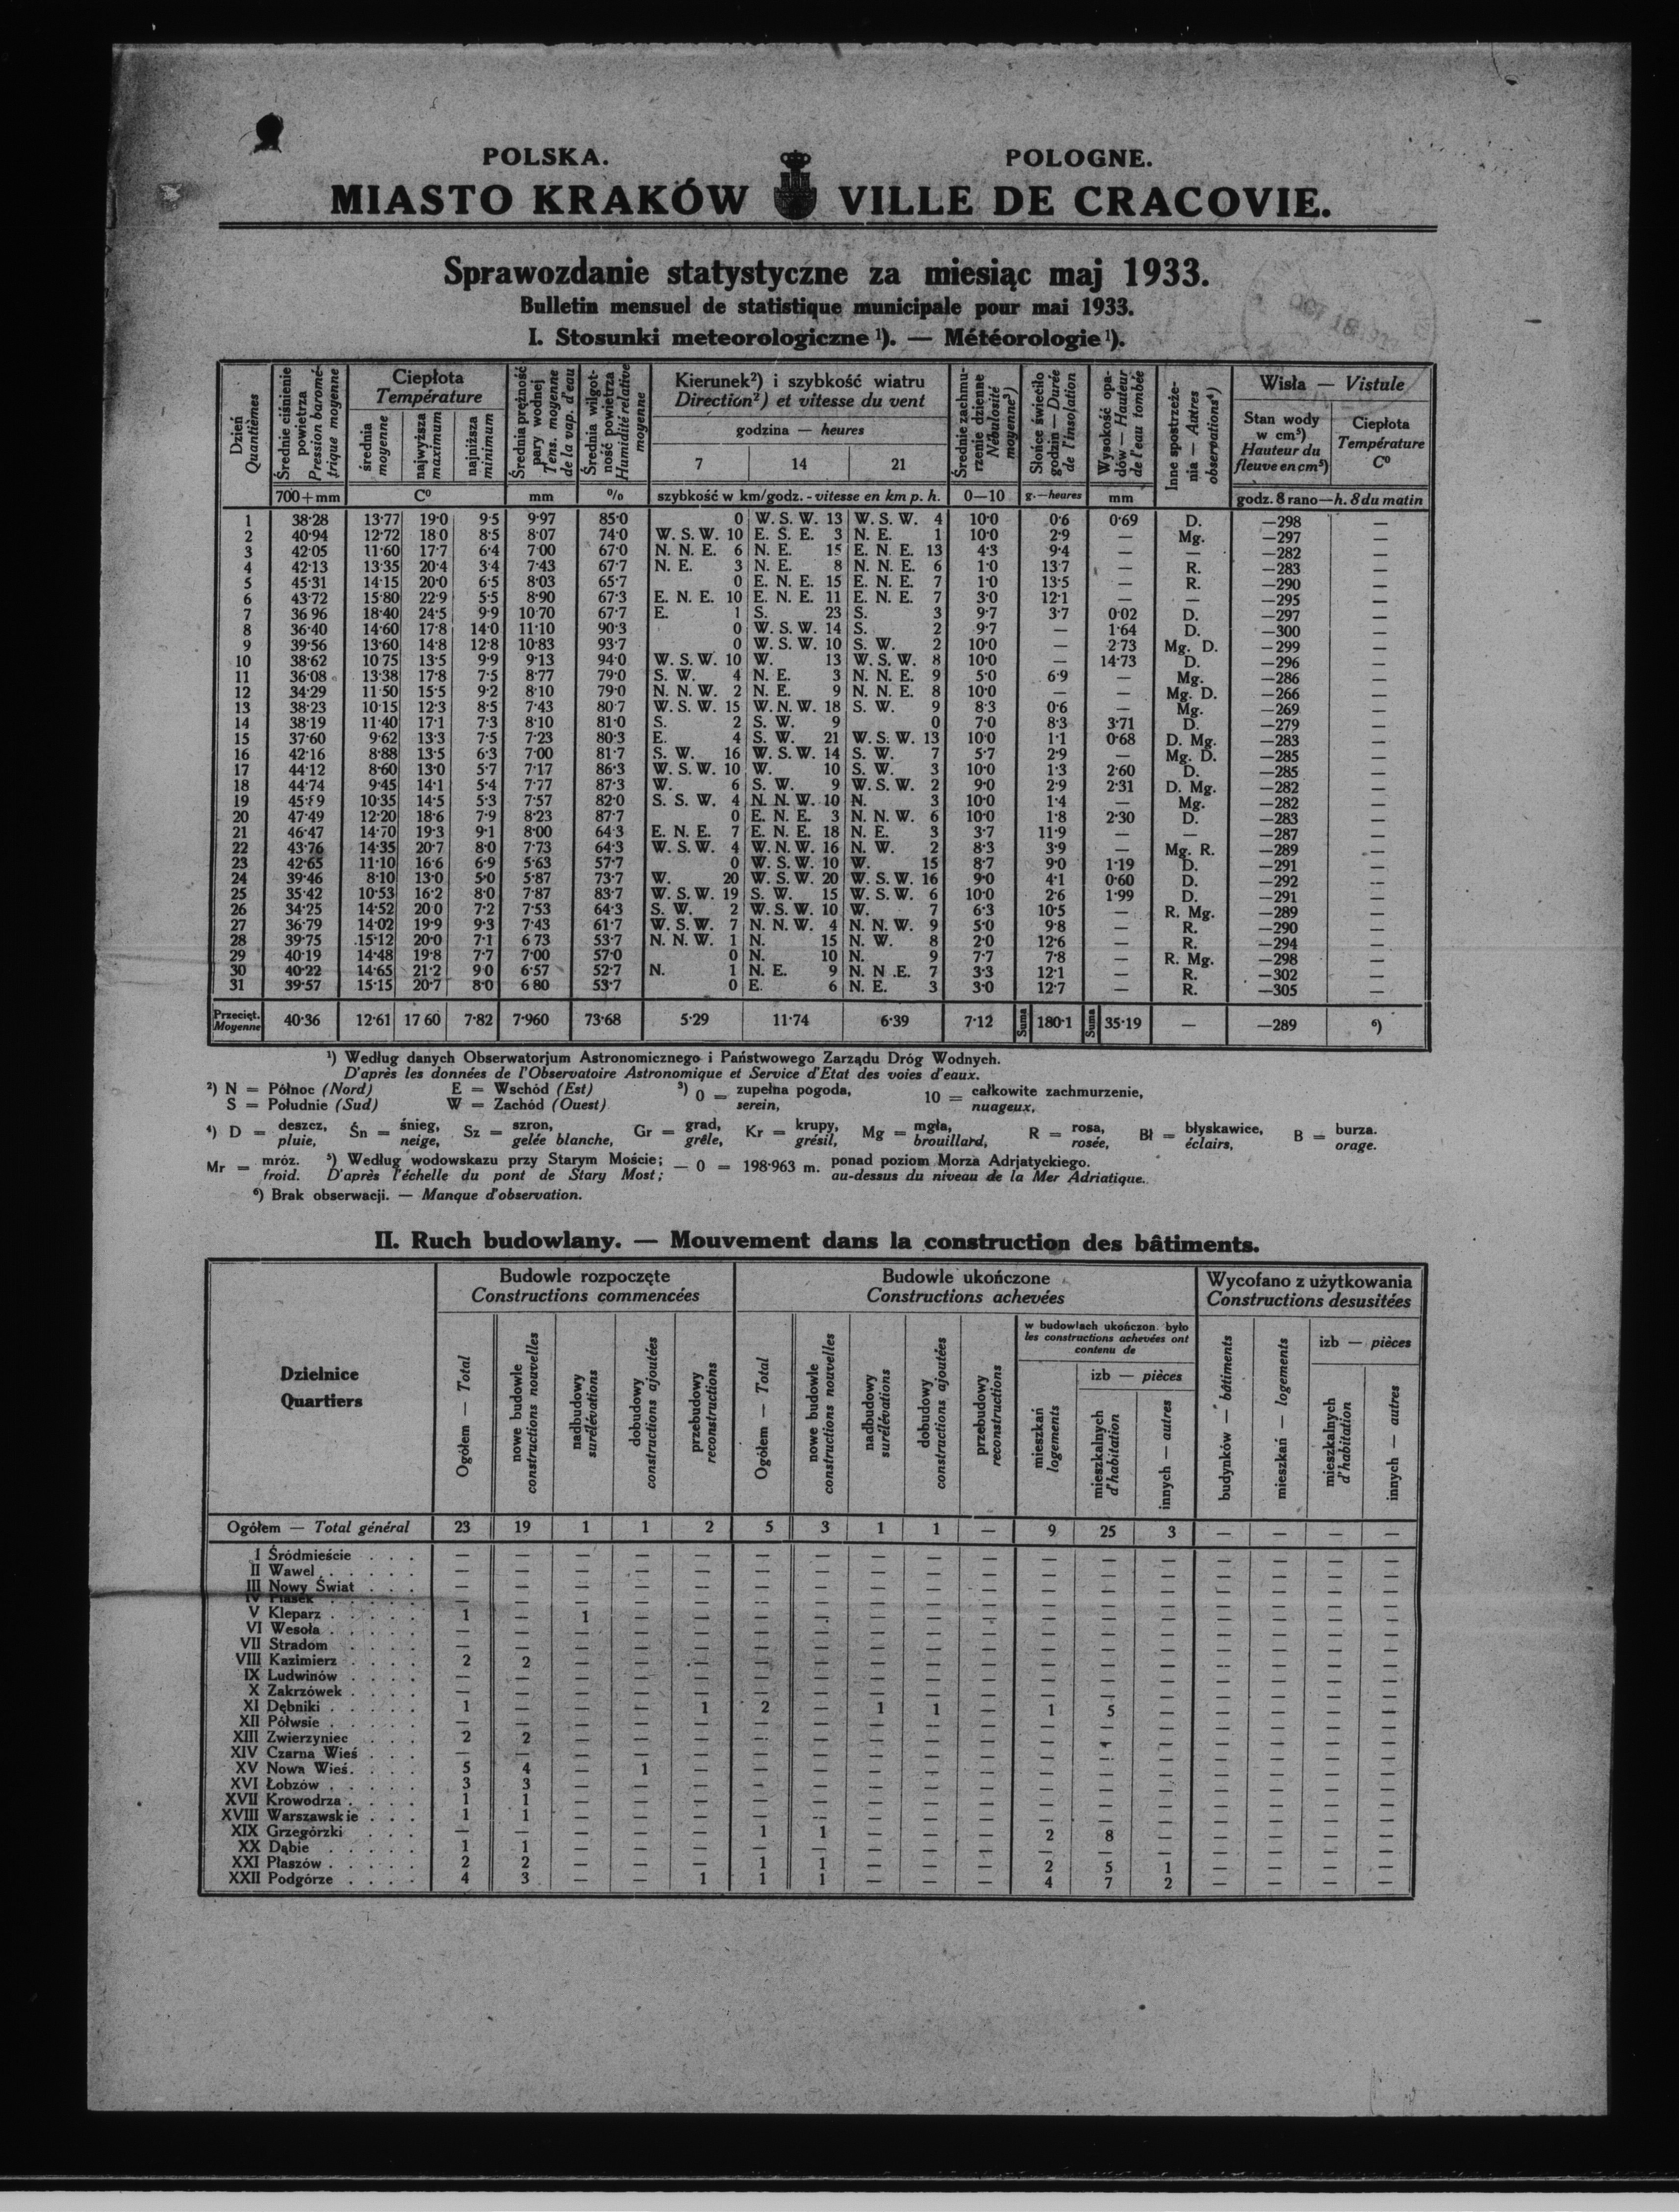 POLSKA. POLOGNE.
MIASTO KRAKÓW VILLE DE CRACOVIE.
Sprawozdanie statystyczne za miesiąc maj 1933.
Bulletin mensuel de statistique municipale pour mai 1933.
I. Stosunki meteorologiczne ¹). — Météorologie ¹).
Dzień Quantièmes
Średnie ciśnienie powietrza Pression barométrique moyenne
Ciepłota Température
średnia moyenne
najwyższa maximum
najniższa minimum
Średnia prężność pary wodnej Tens. moyenne de la vap. d'eau
Średnia wilgotność powietrza Humidité relative moyenne
Kierunek²) i szybkość wiatru
Direction²) et vitesse du vent
godzina — heures
7 14 21
Średnie zachmurzenie dzienne Nébulosité moyenne³)
Słońce świeciło godzin — Durée de l'insolation
Wysokość opadów — Hauteur de l'eau tombée
Inne spostrzeżenia — Autres observations⁴)
Wisła — Vistule
Stan wody w cm⁵) Hauteur du fleuve en cm⁵)
Ciepłota Température C⁰
700+mm C⁰ mm ⁰/₀ szybkość w km/godz. - vitesse en km p. h. 0—10 g.—heures mm godz. 8 rano—h. 8 du matin
1 38·28 13·77 19·0 9·5 9·97 85·0 0 W. S. W. 13 W. S. W. 4 10·0 0·6 0·69 D. —298 —
2 40·94 12·72 18 0 8·5 8·07 74·0 W. S. W. 10 E. S. E. 3 N. E. 1 10·0 2·9 — Mg. —297 —
3 42·05 11·60 17·7 6·4 7·00 67·0 N. N. E. 6 N. E. 15 E. N. E. 13 4·3 9·4 — — —282 —
4 42·13 13·35 20·4 3·4 7·43 67·7 N. E. 3 N. E. 8 N. N. E. 6 1·0 13·7 — R. —283 —
5 45·31 14·15 20·0 6·5 8·03 65·7 0 E. N. E. 15 E. N. E. 7 1·0 13·5 — R. —290 —
6 43·72 15·80 22·9 5·5 8·90 67·3 E. N. E. 10 E. N. E. 11 E. N. E. 7 3·0 12·1 — — —295 —
7 36 96 18·40 24·5 9·9 10·70 67·7 E. 1 S. 23 S. 3 9·7 3·7 0·02 D. —297 —
8 36·40 14·60 17·8 14·0 11·10 90·3 0 W. S. W. 14 S. 2 9·7 — 1·64 D. —300 —
9 39·56 13·60 14·8 12·8 10·83 93·7 0 W. S. W. 10 S. W. 2 10·0 — 2·73 Mg. D. —299 —
10 38·62 10 75 13·5 9·9 9·13 94·0 W. S. W. 10 W. 13 W. S. W. 8 10·0 — 14·73 D. —296 —
11 36·08 13·38 17·8 7·5 8·77 79·0 S. W. 4 N. E. 3 N. N. E. 9 5·0 6·9 — Mg. —286 —
12 34·29 11·50 15·5 9·2 8·10 79·0 N. N. W. 2 N. E. 9 N. N. E. 8 10·0 — — Mg. D. —266 —
13 38·23 10·15 12·3 8·5 7·43 80·7 W. S. W. 15 W. N. W. 18 S. W. 9 8·3 0·6 — Mg. —269 —
14 38·19 11·40 17·1 7·3 8·10 81·0 S. 2 S. W. 9 0 7·0 8·3 3·71 D. —279 —
15 37·60 9·62 13·3 7·5 7·23 80·3 E. 4 S. W. 21 W. S. W. 13 10·0 1·1 0·68 D. Mg. —283 —
16 42·16 8·88 13·5 6·3 7·00 81·7 S. W. 16 W. S. W. 14 S. W. 7 5·7 2·9 — Mg. D. —285 —
17 44·12 8·60 13·0 5·7 7·17 86·3 W. S. W. 10 W. 10 S. W. 3 10·0 1·3 2·60 D. —285 —
18 44·74 9·45 14·1 5·4 7·77 87·3 W. 6 S. W. 9 W. S. W. 2 9·0 2·9 2·31 D. Mg. —282 —
19 10·35 14·5 5·3 7·57 82·0 S. S. W. 4 N. N. W. 10 N. 3 10·0 1·4 — Mg. —282 —
20 47·49 12·20 18·6 7·9 8·23 87·7 0 E. N. E. 3 N. N. W. 6 10·0 1·8 2·30 D. —283 —
21 46·47 14·70 19·3 9·1 8·00 64·3 E. N. E. 7 E. N. E. 18 N. E. 3 3·7 11·9 — — —287 —
22 43·76 14·35 20·7 8·0 7·73 64·3 W. S. W. 4 W. N. W. 16 N. W. 2 8·3 3·9 — Mg. R. —289 —
23 42·65 11·10 16·6 6·9 5·63 57·7 0 W. S. W. 10 W. 15 8·7 9·0 1·19 D. —291 —
24 39·46 8·10 13·0 5·0 5·87 73·7 W. 20 W. S. W. 20 W. S. W. 16 9·0 4·1 0·60 D. —292 —
25 35·42 10·53 16·2 8·0 7·87 83·7 W. S. W. 19 S. W. 15 W. S. W. 6 10·0 2·6 1·99 D. —291 —
26 34·25 14·52 20 0 7·2 7·53 64·3 S. W. 2 W. S. W. 10 W. 7 6·3 10·5 — R. Mg. —289 —
27 36·79 14·02 19·9 9·3 7·43 61·7 W. S. W. 7 N. N. W. 4 N. N. W. 9 5·0 9·8 — R. —290 —
28 39·75 15·12 20·0 7·1 6 73 53·7 N. N. W. 1 N. 15 N. W. 8 2·0 12·6 — R. —294 —
29 40·19 14·48 19·8 7·7 7·00 57·0 0 N. 10 N. 9 7·7 7·8 — R. Mg. —298 —
30 40·22 14·65 21·2 9·0 6·57 52·7 N. 1 N. E. 9 N. N .E. 7 3·3 12·1 — R. —302 —
31 39·57 15·15 20·7 8·0 6 80 53·7 0 E. 6 N. E. 3 3·0 12·7 — R. —305 —
Przecięt. Moyenne 40·36 12·61 17 60 7·82 7·960 73·68 5·29 11·74 6·39 7·12 Suma 180·1 Suma 35·19 — —289 ⁶)
¹) Według danych Obserwatorjum Astronomicznego i Państwowego Zarządu Dróg Wodnych.
D'après les données de l'Observatoire Astronomique et Service d'Etat des voies d'eaux.
²) N = Północ (Nord) E = Wschód (Est) ³) 0 = zupełna pogoda, serein, 10 = całkowite zachmurzenie, nuageux,
S = Południe (Sud) W = Zachód (Ouest)
⁴) D = deszcz, pluie, Śn = śnieg, neige, Sz = szron, gelée blanche, Gr = grad, grêle, Kr = krupy, grésil, Mg = mgła, brouillard, R = rosa, rosée, Bł = błyskawice, éclairs, B = burza. orage.
Mr = mróz. froid. ⁵) Według wodowskazu przy Starym Moście; — 0 = 198·963 m. ponad poziom Morza Adrjatyckiego.
D'après l'échelle du pont de Stary Most; au-dessus du niveau de la Mer Adriatique.
⁶) Brak obserwacji. — Manque d'observation.
II. Ruch budowlany. — Mouvement dans la construction des bâtiments.
Dzielnice
Quartiers
Budowle rozpoczęte
Constructions commencées
Budowle ukończone
Constructions achevées
Wycofano z użytkowania
Constructions desusitées
Ogółem — Total
nowe budowle constructions nouvelles
nadbudowy surélévations
dobudowy constructions ajoutées
przebudowy reconstructions
Ogółem — Total
nowe budowle constructions nouvelles
nadbudowy surélévations
dobudowy constructions ajoutées
przebudowy reconstructions
w budowlach ukończon. było
les constructions achevées ont contenu de
mieszkań logements
izb — pièces
mieszkalnych d'habitation
innych — autres
budynków — bâtiments
mieszkań — logements
izb — pièces
mieszkalnych d'habitation
innych — autres
Ogółem — Total général 23 19 1 1 2 5 3 1 1 — 9 25 3 — — — —
I Śródmieście . . . — — — — — — — — — — — — — — — — —
II Wawel . . . . . — — — — — — — — — — — — — — — — —
III Nowy Świat . . . — — — — — — — — — — — — — — — — —
IV Piasek . . . . . — — — — — — — — — — — — — — — — —
V Kleparz . . . . . 1 — 1 — — — — — — — — — — — — — —
VI Wesoła . . . . . — — — — — — — — — — — — — — — — —
VII Stradom . . . . — — — — — — — — — — — — — — — — —
VIII Kazimierz . . . . 2 2 — — — — — — — — — — — — — — —
IX Ludwinów . . . . — — — — — — — — — — — — — — — — —
X Zakrzówek . . . . — — — — — — — — — — — — — — — — —
XI Dębniki . . . . . 1 — — — 1 2 — 1 1 — 1 5 — — — — —
XII Półwsie . . . . . — — — — — — — — — — — — — — — — —
XIII Zwierzyniec . . . 2 2 — — — — — — — — — — — — — — —
XIV Czarna Wieś . . . — — — — — — — — — — — — — — — — —
XV Nowa Wieś. . . . 5 4 — 1 — — — — — — — — — — — — —
XVI Łobzów . . . . . 3 3 — — — — — — — — — — — — — — —
XVII Krowodrza . . . . 1 1 — — — — — — — — — — — — — — —
XVIII Warszawskie . . . 1 1 — — — — — — — — — — — — — — —
XIX Grzegórzki . . . — — — — — 1 1 — — — 2 8 — — — — —
XX Dąbie . . . . . 1 1 — — — — — — — — — — — — — — —
XXI Płaszów . . . . . 2 2 — — — 1 1 — — — 2 5 1 — — — —
XXII Podgórze . . . . 4 3 — — 1 1 1 — — — 4 7 2 — — — —